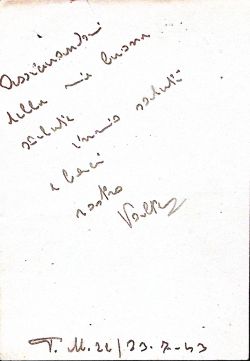 Assicurandovi
della mia buona
salute
invio saluti
e baci
vostro
Valter
P. M. 21/23.7-43